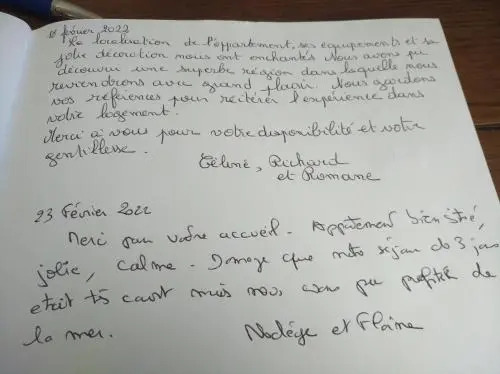 février 2022
La localisation de l'appartement, ses équipements et sa
jolie décoration nous ont enchantés. Nous avons pu
découvrir une superbe région dans laquelle nous
reviendrons avec grand plaisir. Nous gardons
vos références pour réitérer l'expérience dans
votre logement.
Merci à vous pour votre disponibilité et votre
gentillesse.
Céline, Richard
et Romane
23 Février 2022
Merci pour votre accueil. Appartement bien situé,
jolie, calme. Domage que notre séjour de 3 jours
etait très court mais nous avons pu profité de
la mer.
Nadége et